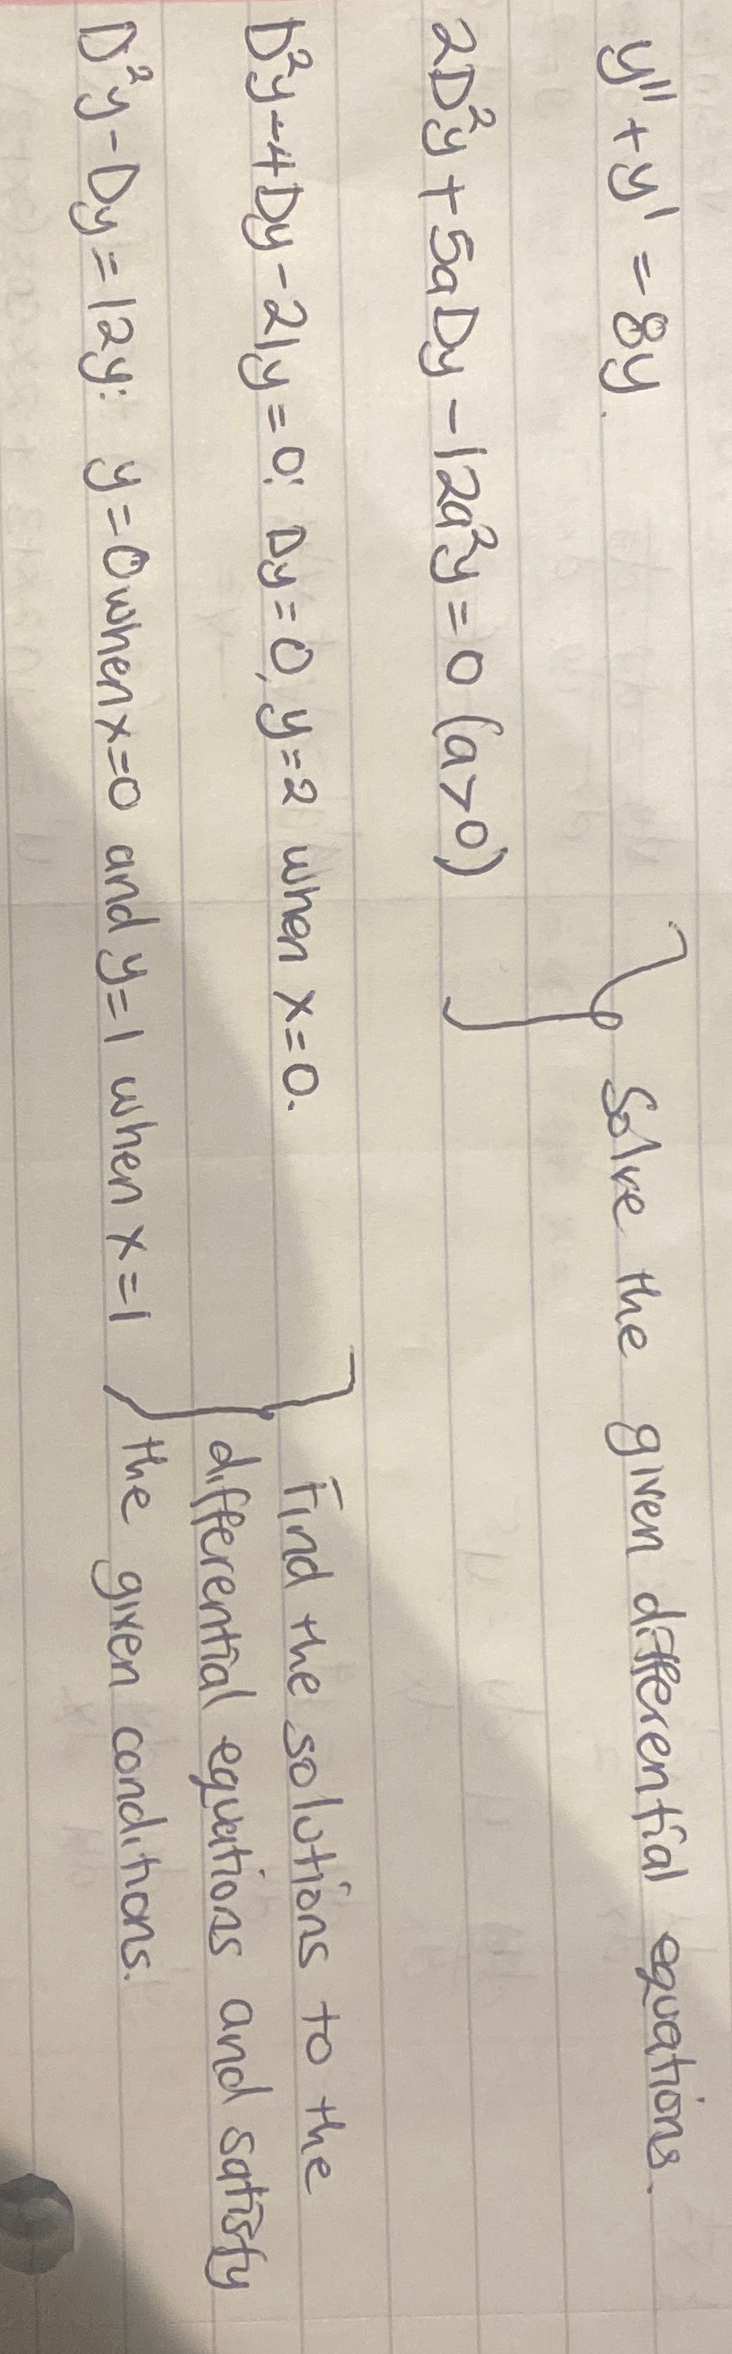 y'' + y' = 8y.
2D²y + 5aDy - 12a²y = 0 (a > 0)
Solve the given differential equations.
D²y - 4Dy - 21y = 0; Dy = 0, y = 2 when x = 0.
D²y - Dy = 12y: y = 0 when x = 0 and y = 1 when x = 1
Find the solutions to the
differential equations and satisfy
the given conditions.